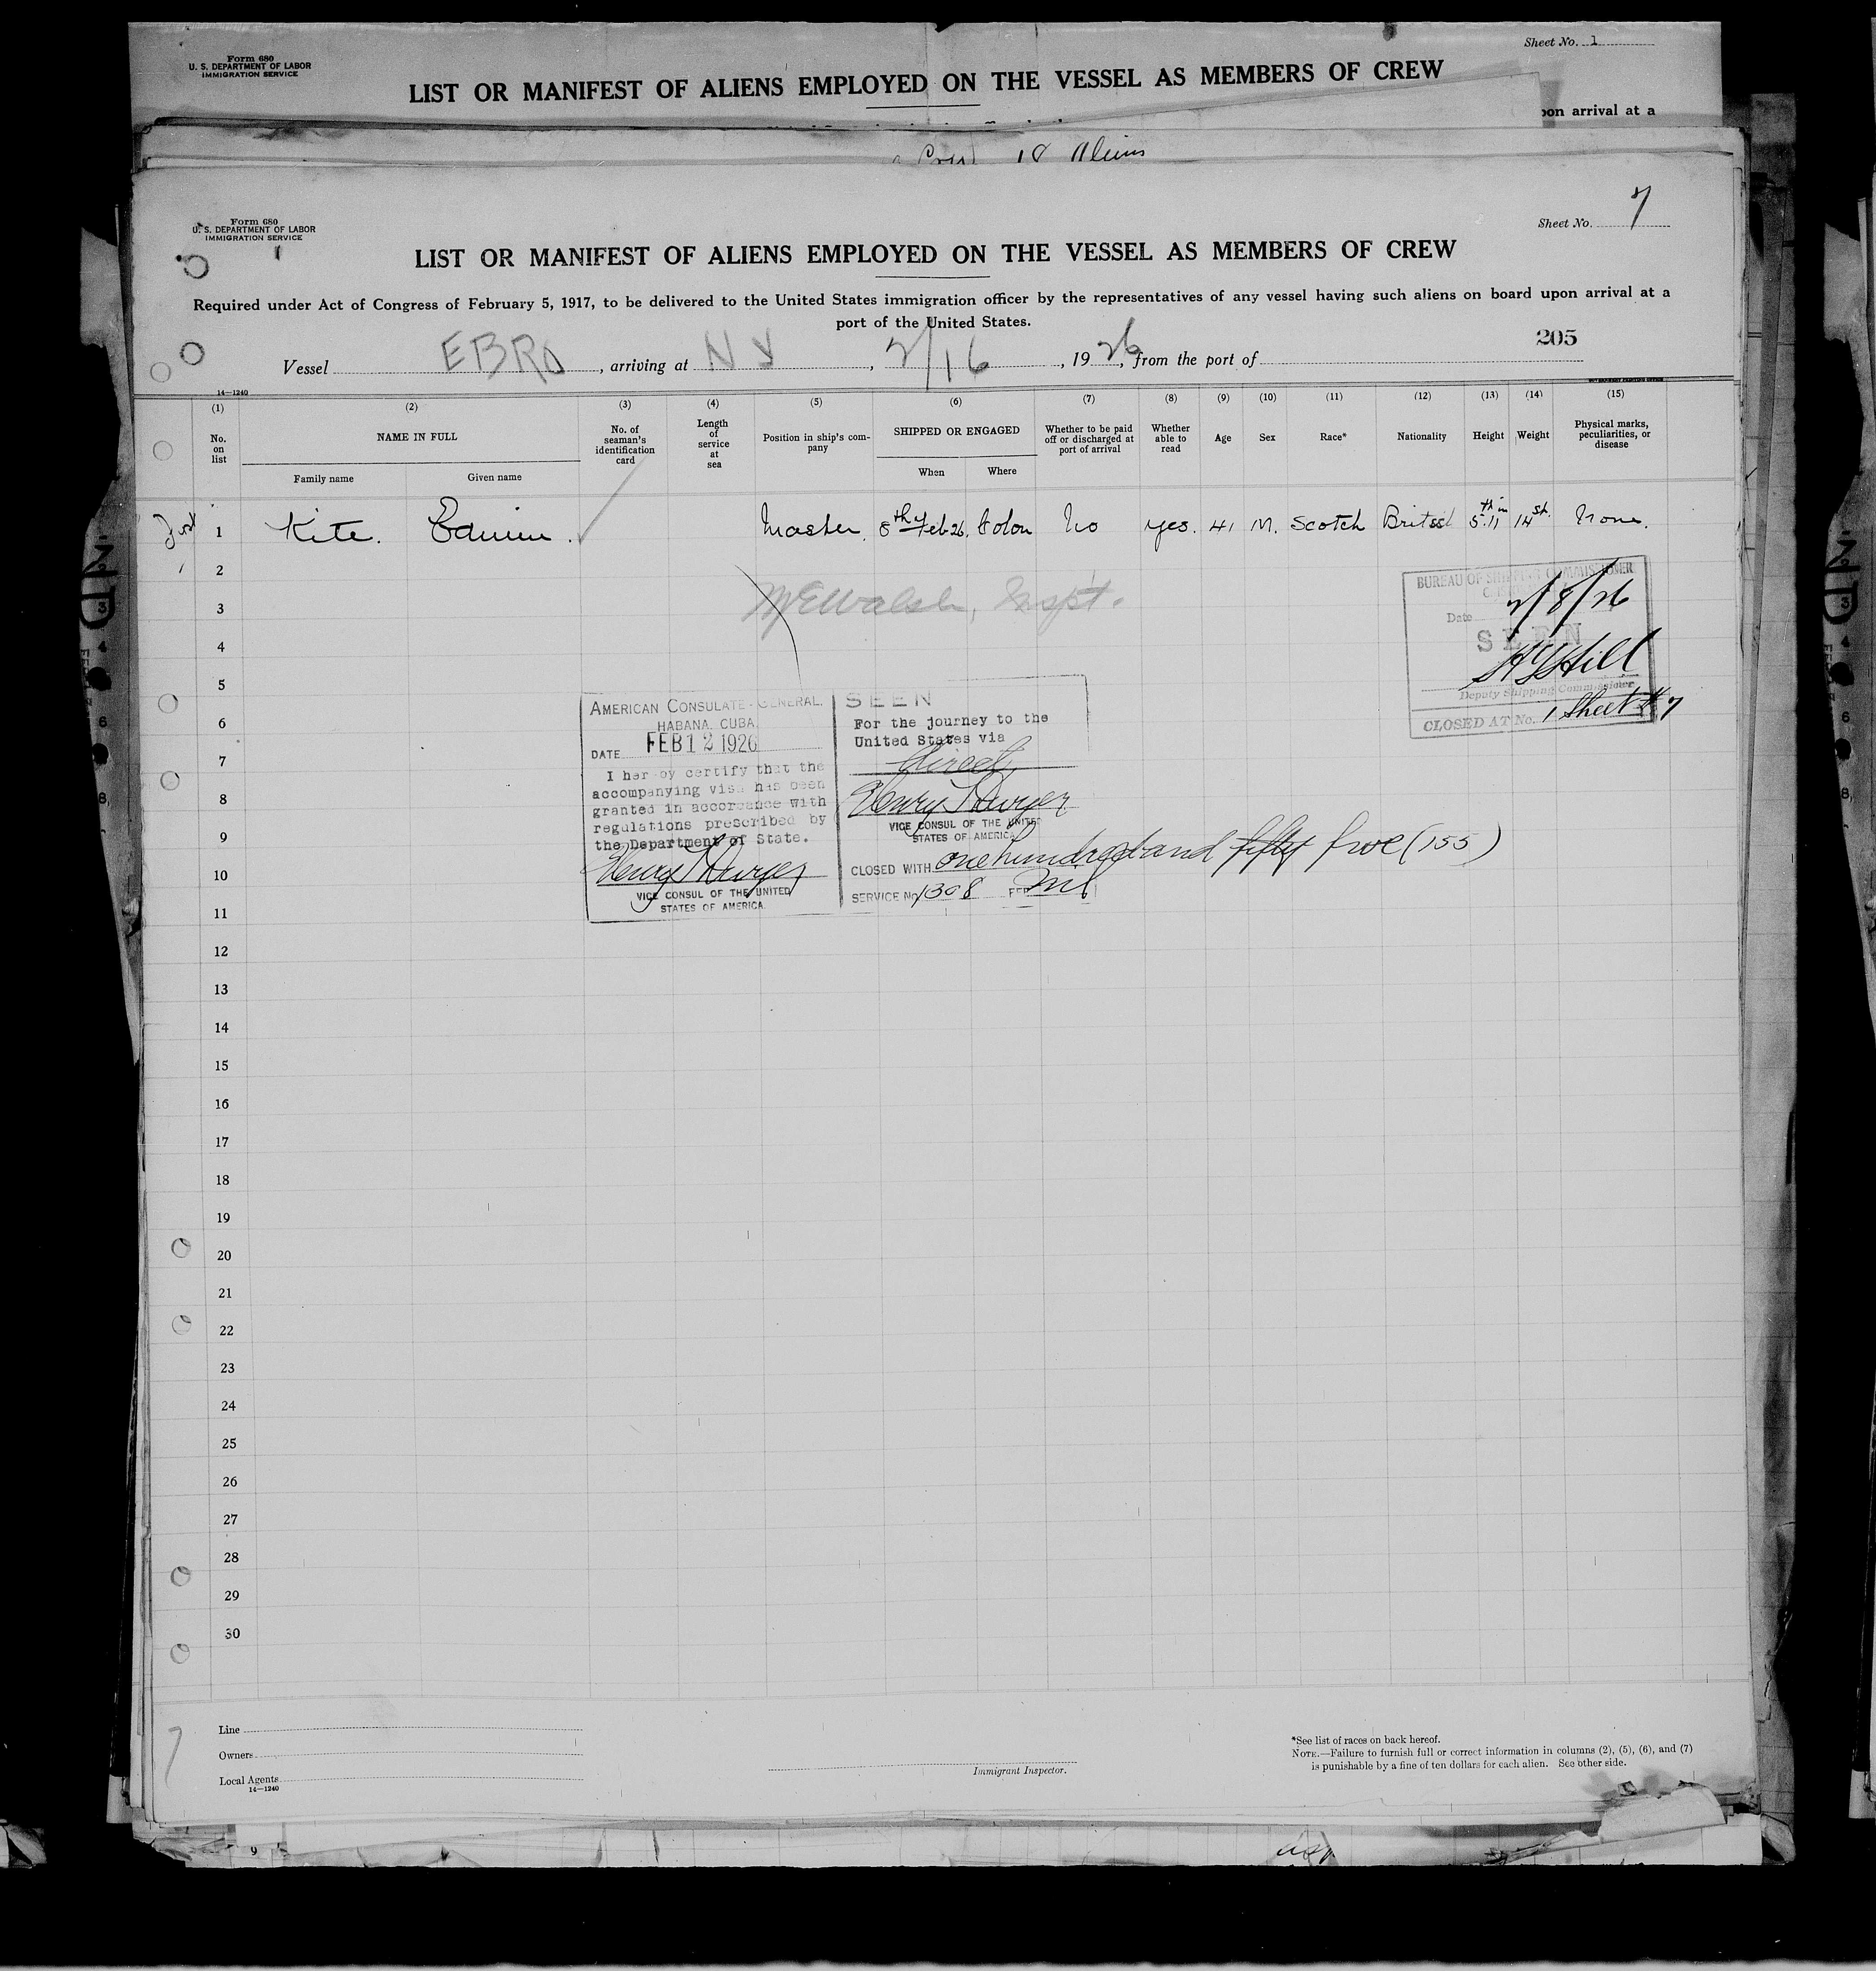 Form 680
U. S. DEPARTMENT OF LABOR
IMMIGRATION SERVICE
Sheet No. 1
LIST OR MANIFEST OF ALIENS EMPLOYED ON THE VESSEL AS MEMBERS OF CREW
pon arrival at a
18 Aliens
Form 680
U. S. DEPARTMENT OF LABOR
IMMIGRATION SERVICE
Sheet No. 7
LIST OR MANIFEST OF ALIENS EMPLOYED ON THE VESSEL AS MEMBERS OF CREW
Required under Act of Congress of February 5, 1917, to be delivered to the United States immigration officer by the representatives of any vessel having such aliens on board upon arrival at a
port of the United States.
205
Vessel EBRO, arriving at NY, 2/16, 1926, from the port of
14—1240
(1) (2) (3) (4) (5) (6) (7) (8) (9) (10) (11) (12) (13) (14) (15)
No. on list
NAME IN FULL
Family name
Given name
No. of seaman's identification card
Length of service at sea
Position in ship's company
SHIPPED OR ENGAGED
When
Where
Whether to be paid off or discharged at port of arrival
Whether able to read
Age
Sex
Race*
Nationality
Height
Weight
Physical marks, peculiarities, or disease
1 Kite. Edwin. Master. 8th Feb 26. Colon No yes. 41 M. Scotch 5.11 14 st. None.
2
3
4
5
6
7
8
9
10
11
12
13
14
15
16
17
18
19
20
21
22
23
24
25
26
27
28
29
30
Walsh, Inspt.
BUREAU OF SHIPPING COMMISSIONER
Date 2/8/26
SEEN
Hill
Deputy Shipping Commissioner
CLOSED AT No. 1 Sheet # 7
AMERICAN CONSULATE-GENERAL,
HABANA, CUBA.
DATE FEB 12 1926
I hereby certify that the
accompanying visa has been
granted in accordance with
regulations prescribed by
the Department of State.
Henry T Dwyer
VICE CONSUL OF THE UNITED
STATES OF AMERICA.
SEEN
For the journey to the
United States via
direct
Henry T Dwyer
VICE CONSUL OF THE UNITED
STATES OF AMERICA
CLOSED WITH one hundred and fifty five (155)
SERVICE No. 1308 FEE Nil
Line
Owners
Local Agents
14—1240
Immigrant Inspector.
*See list of races on back hereof.
NOTE.—Failure to furnish full or correct information in columns (2), (5), (6), and (7)
is punishable by a fine of ten dollars for each alien. See other side.
7
9